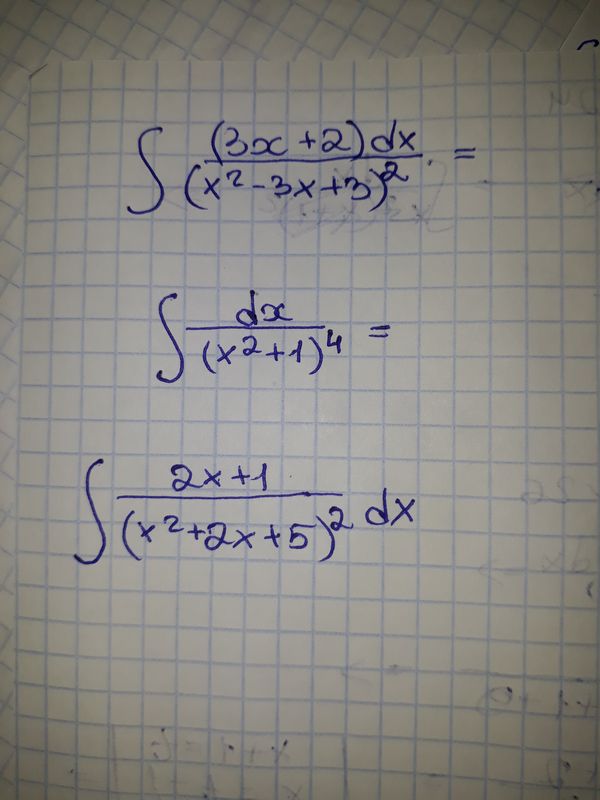 ∫ (3x+2)dx / (x²-3x+3)² =
∫ dx / (x²+1)⁴ =
∫ 2x+1 / (x²+2x+5)² dx